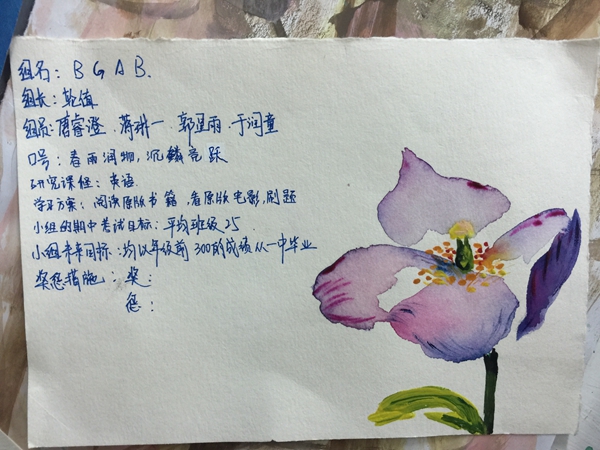 组名：B G A B.
组长：乾值
组员：唐睿澄、蒋琳一、郭昱雨、于润童
口号：春雨润物，沉鳞竞跃
研究课经：英语
学习方案：阅读原版书籍，看原版电影，刷题
小组的期中考试目标：平均班级25
小组未来目标：均以年级前300的成绩从一中毕业
奖惩措施：奖：
惩：